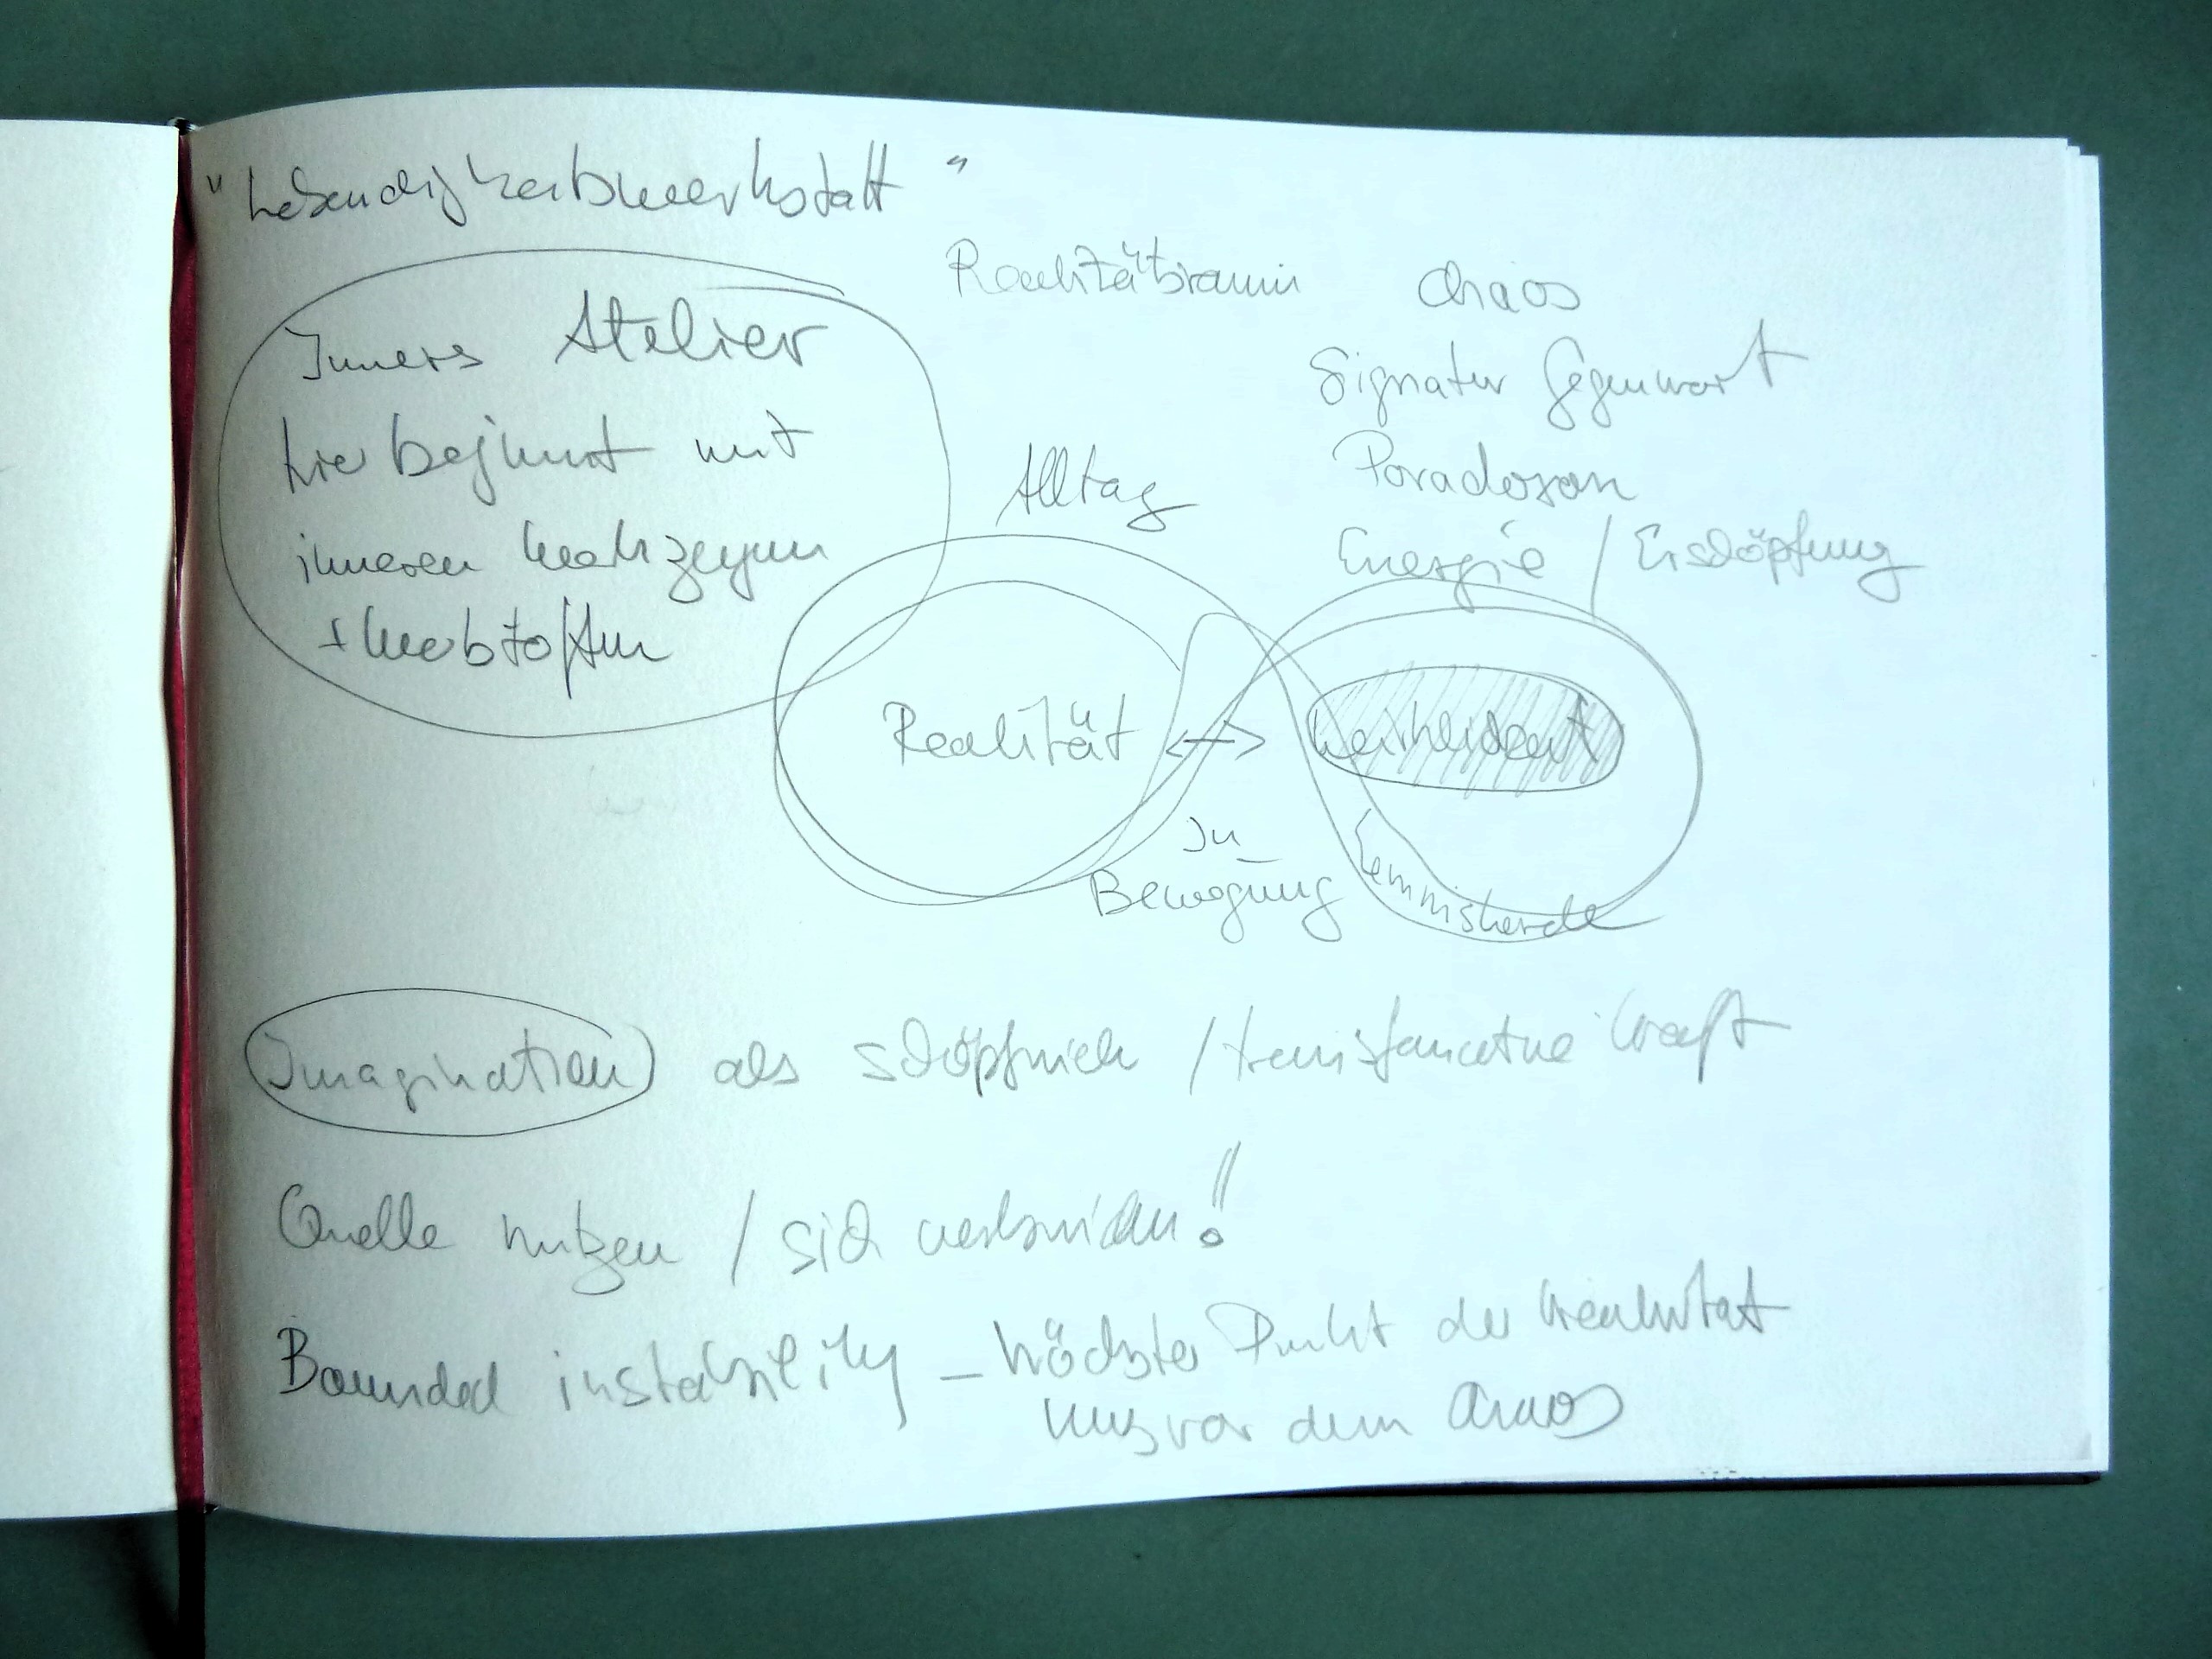 "Lebendigkeitswerkstatt"
Realitätsraum
Chaos
Inneres Atelier
Signatur Gegenwart
hier beginnt mit
Paradoxon
Alltag
inneren Werkzeugen
Energie / Erschöpfung
+ Werkstoffen
Realität ↔
In
Bewegung
Lemniskate
Imagination als schöpferisch / transformative Kraft
Quelle nutzen / sich verbinden!
Bounded instability – höchster Punkt der Kreativität
kurz vor dem Chaos